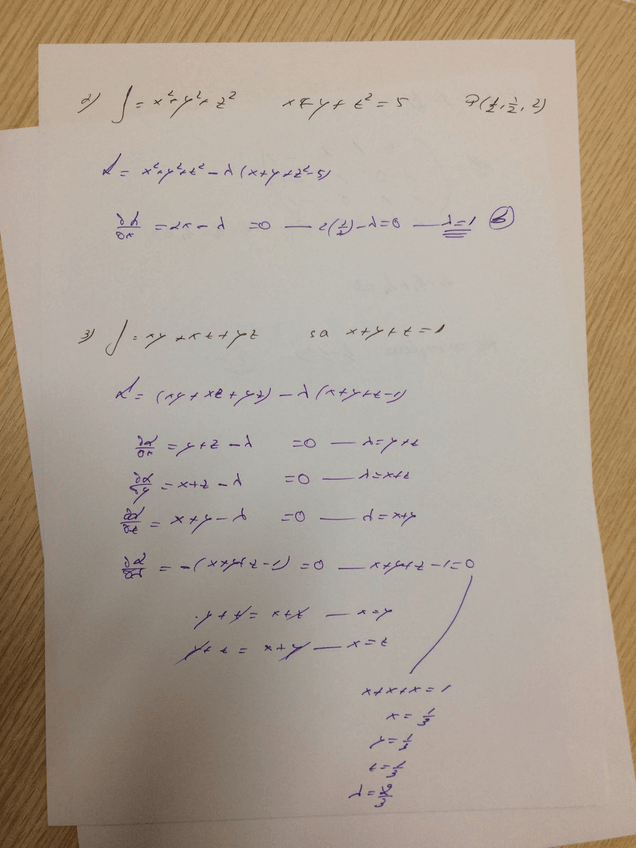 2) f = x² + y² + z² x + y + z² = 5 P(1/2, 1/2, 2)
L = x² + y² + z² - λ(x + y + z² - 5)
∂L/∂x = 2x - λ = 0 — 2(1/2) - λ = 0 — λ = 1 b
3) f = xy + xz + yz sa x + y + z = 1
L = (xy + xz + yz) - λ(x + y + z - 1)
∂L/∂x = y + z - λ = 0 — λ = y + z
∂L/∂y = x + z - λ = 0 — λ = x + z
∂L/∂z = x + y - λ = 0 — λ = x + y
∂L/∂λ = -(x + y + z - 1) = 0 — x + y + z - 1 = 0
y + z = x + z — x = y
y + z = x + y — x = z
x + x + x = 1
x = 1/3
y = 1/3
z = 1/3
λ = 2/3